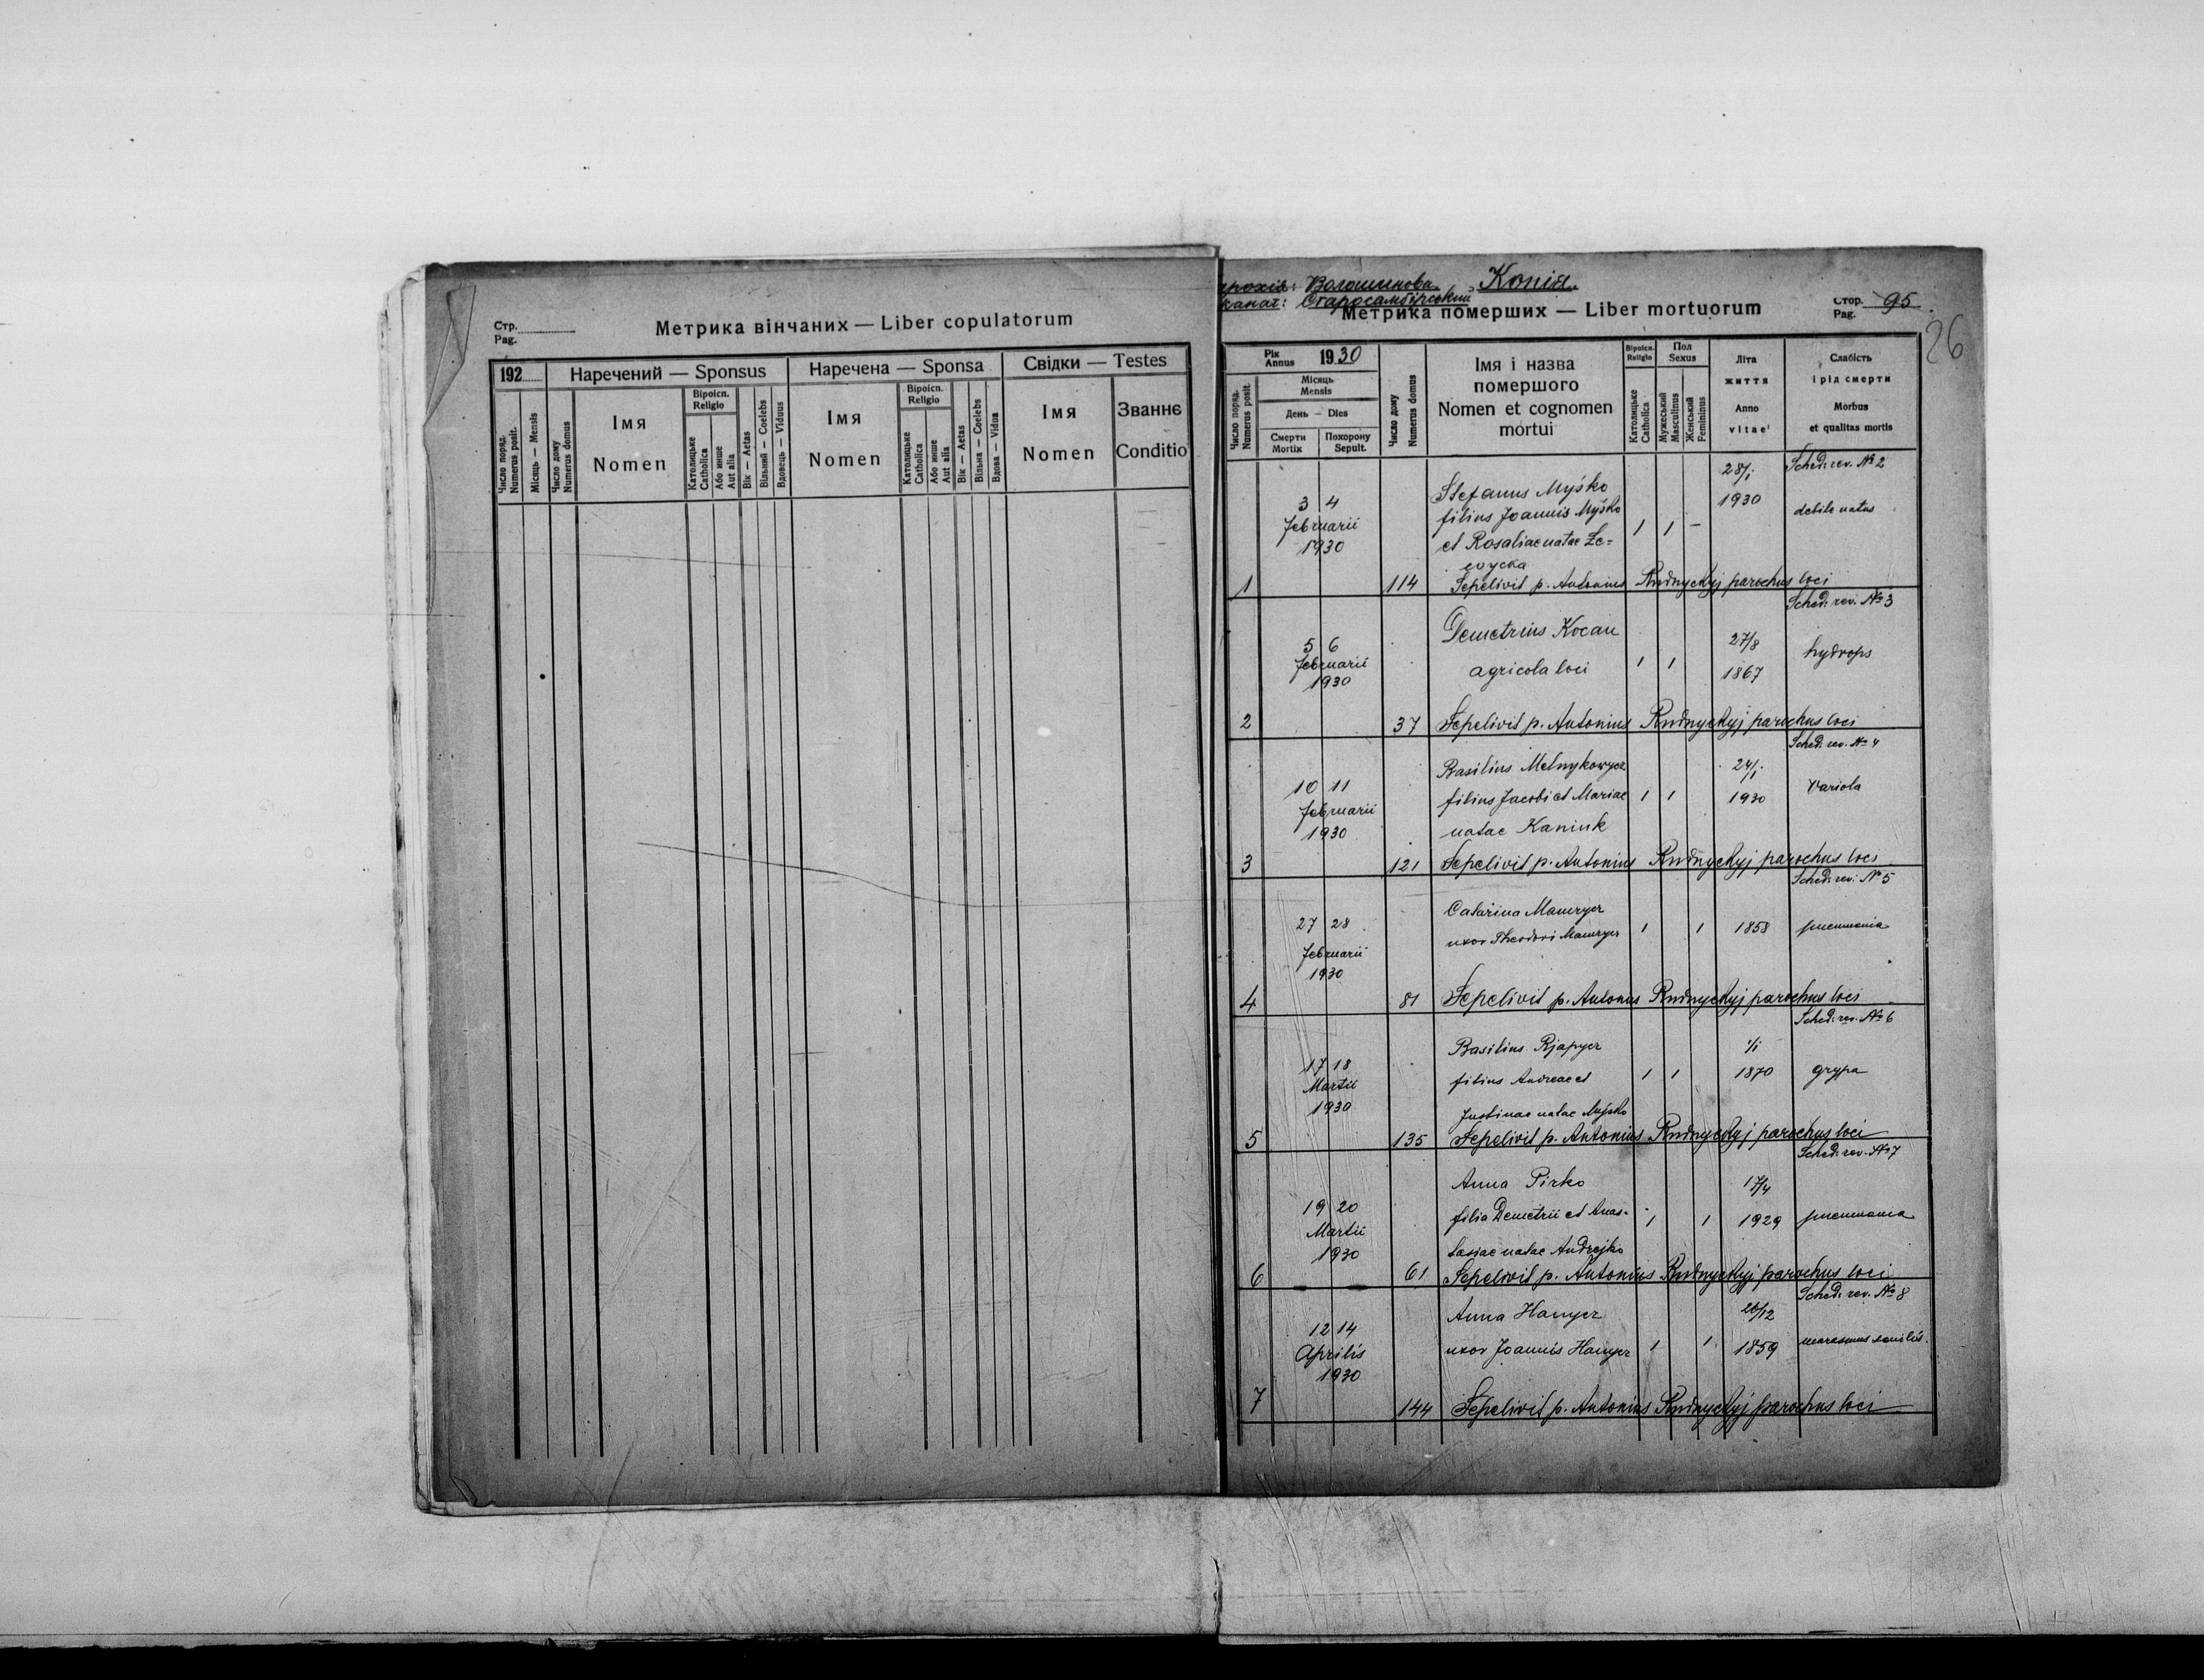 Стр.
Pag.
Метрика вінчаних — Liber copulatorum
192
Наречений — Sponsus
Наречена — Sponsa
Свідки — Testes
Число поряд.
Numerus posit.
Місяць — Mensis
Число дому
Numerus domus
Імя
Nomen
Віроісп.
Religio
Католицьке
Catholica
Або инше
Aut alia
Вік — Aetas
Вільний — Coelebs
Вдовець — Viduus
Імя
Nomen
Віроісп.
Religio
Католицьке
Catholica
Або инше
Aut alia
Вік — Aetas
Вільна — Coelebs
Вдова — Vidua
Імя
Nomen
Званнє
Conditio
парохія: Волошинова. Копія.
канат: Старосамбірський
Метрика померших — Liber mortuorum
Стор.
Pag. 95
26
Рік
Annus 1930
Число поряд.
Numerus posit.
Місяць
Mensis
День — Dies
Смерти
Mortix
Похорону
Sepult.
Число дому
Numerus domus
Імя і назва
помершого
Nomen et cognomen
mortui
Віроісп.
Religio
Католицьке
Catholica
Пол
Sexus
Мужеський
Masculinus
Женський
Femininus
Літа
життя
Anno
vitae
Слабість
і рід смерти
Morbus
et qualitas mortis
Sched. rev. № 2
3 4
Februarii
1930
Stefanus Myśko
filius Joannis Myśko
et Rosaliae natae Le=
wycka
1 1 –
28/1
1930
debile natus
1 114 Sepelivit p. Antonius Rudnyckyj parochus loci
Sched. rev. № 3
5 6
Februarii
1930
Demetrius Kocan
agricola loci
1 1
27/8
1867
hydrops
2 37 Sepelivit p. Antonius Rudnyckyj parochus loci
Sched. rev. № 4
10 11
Februarii
1930
Basilius Melnykowycz
filius Jacobi et Mariae
natae Kaniuk
1 1
24/1
1930
Variola
3 121 Sepelivit p. Antonius Rudnyckyj parochus loci
Sched. rev. № 5
27 28
Februarii
1930
Catarina
uxor Theodori
1 1
1858
pneumonia
4 81 Sepelivit p. Antonius Rudnyckyj parochus loci
Sched. rev. № 6
17 18
Martii
1930
Basilius Rjapycz
filius Andreae et
Justinae natae Myśko
1 1
1/1
1870
grypa
5 135 Sepelivit p. Antonius Rudnyckyj parochus loci
Sched. rev. № 7
19 20
Martii
1930
Anna Pirko
filia Demetrii et Anas-
tasiae natae Andrejko
1 1
17/4
1929
pneumonia
6 61 Sepelivit p. Antonius Rudnyckyj parochus loci
Sched. rev. № 8
12 14
Aprilis
1930
Anna Hamycz
uxor Joannis Hamycz
1 1
26/12
1859
marasmus senilis.
7 144 Sepelivit p. Antonius Rudnyckyj parochus loci